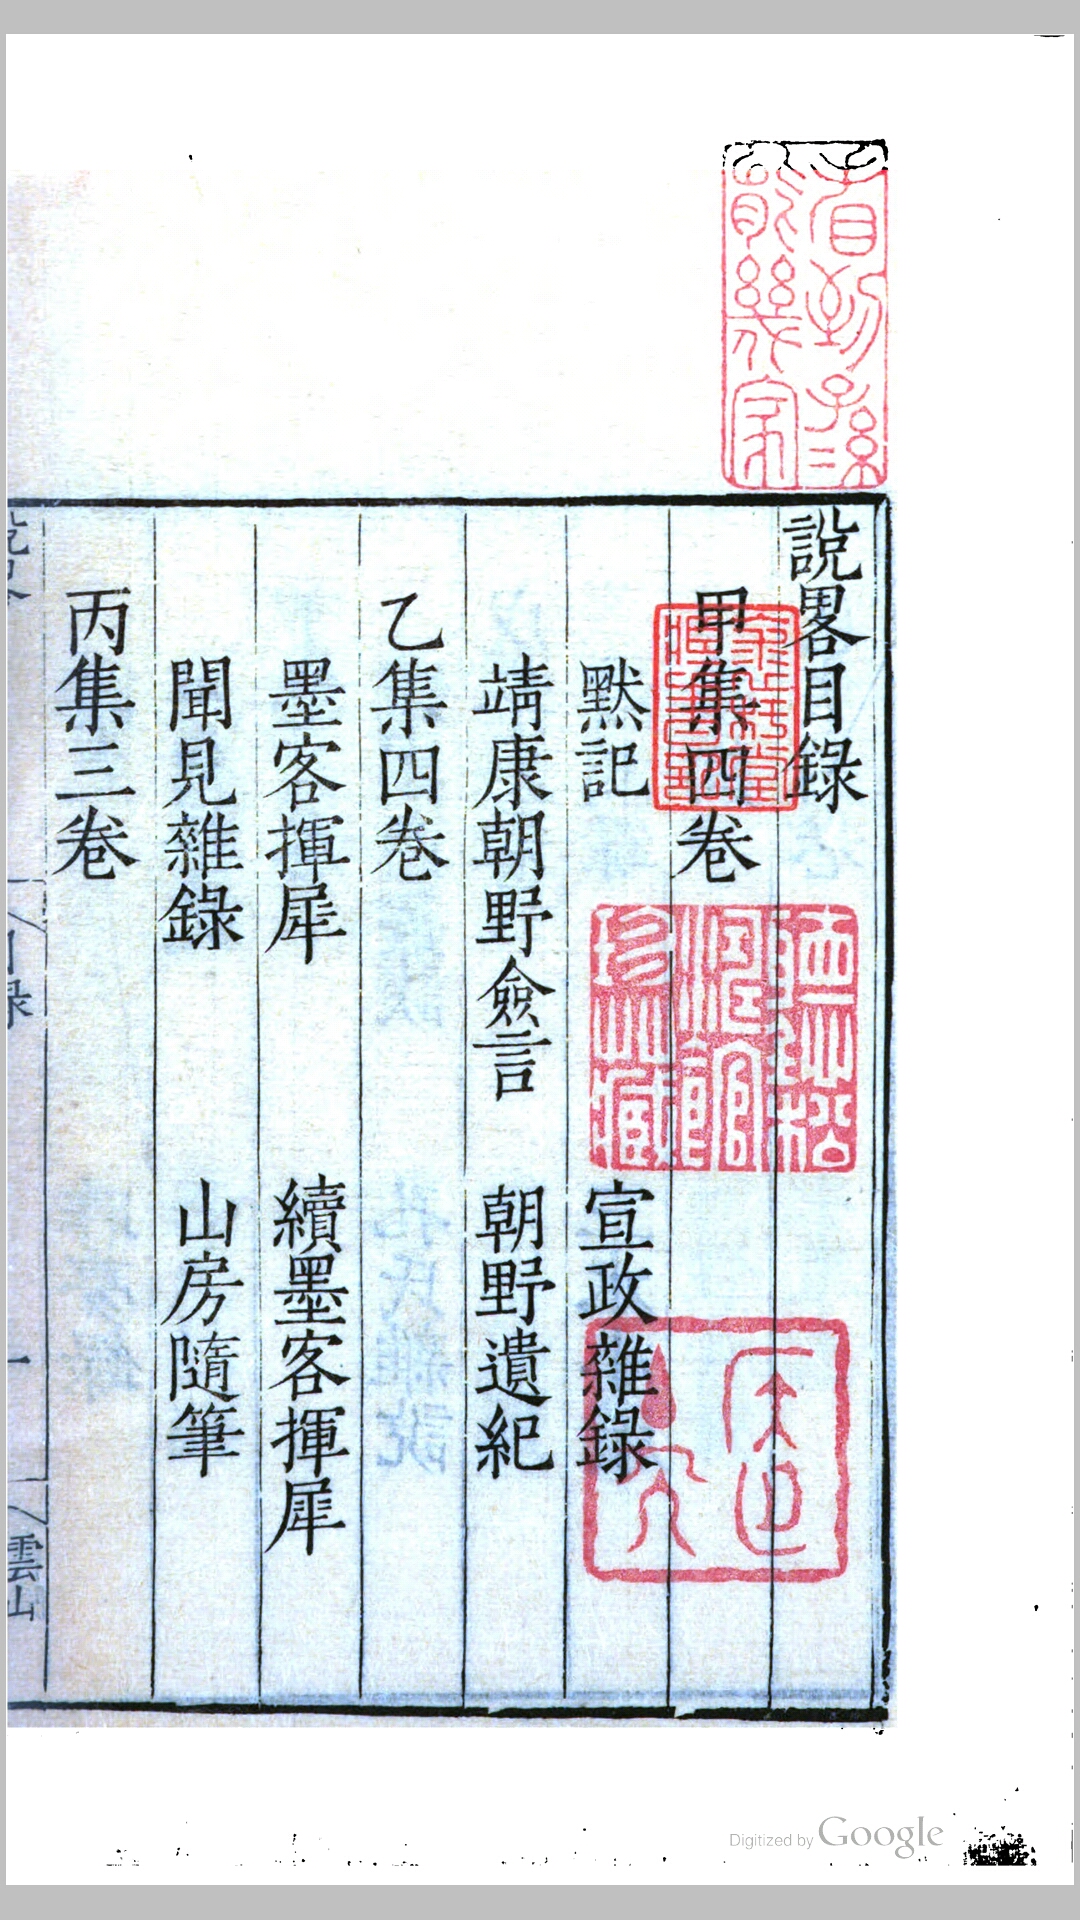 說畧目錄
甲集四卷
默記　宣政雜錄
靖康朝野僉言　朝野遺紀
乙集四卷
墨客揮犀　續墨客揮犀
聞見雜錄　山房隨筆
丙集三卷
聽松澄館珍藏
直到子孫能幾家
Digitized by Google